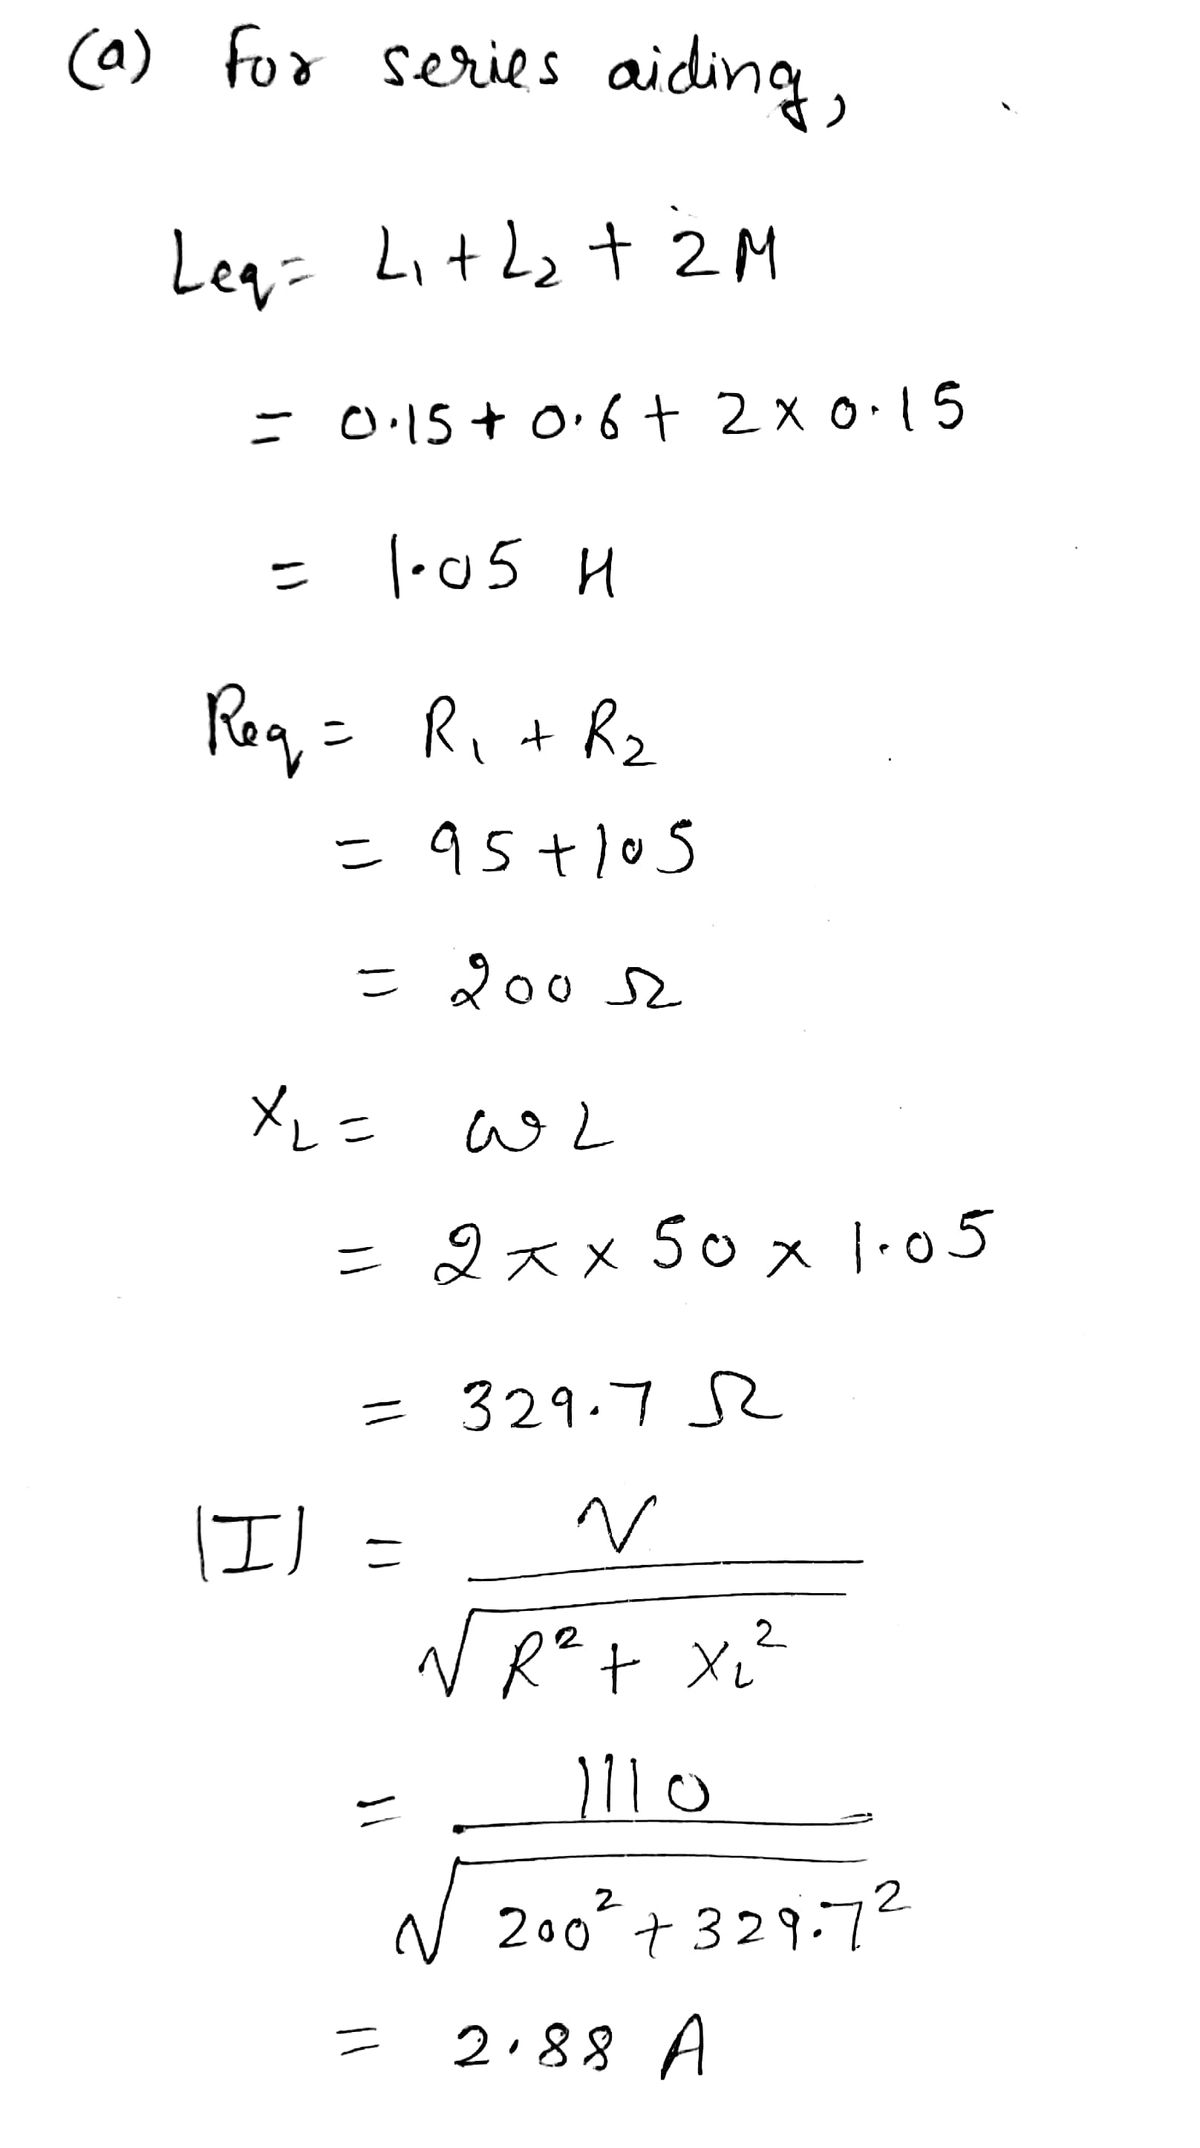 (a) For series aiding,
Leq = L₁ + L₂ + 2M
= 0.15 + 0.6 + 2 × 0.15
= 1.05 H
Req = R₁ + R₂
= 95 + 105
= 200 Ω
X_L = ωL
= 2π × 50 × 1.05
= 329.7 Ω
|I| = V
√R² + X_L²
= 1110
√200² + 329.7²
= 2.88 A